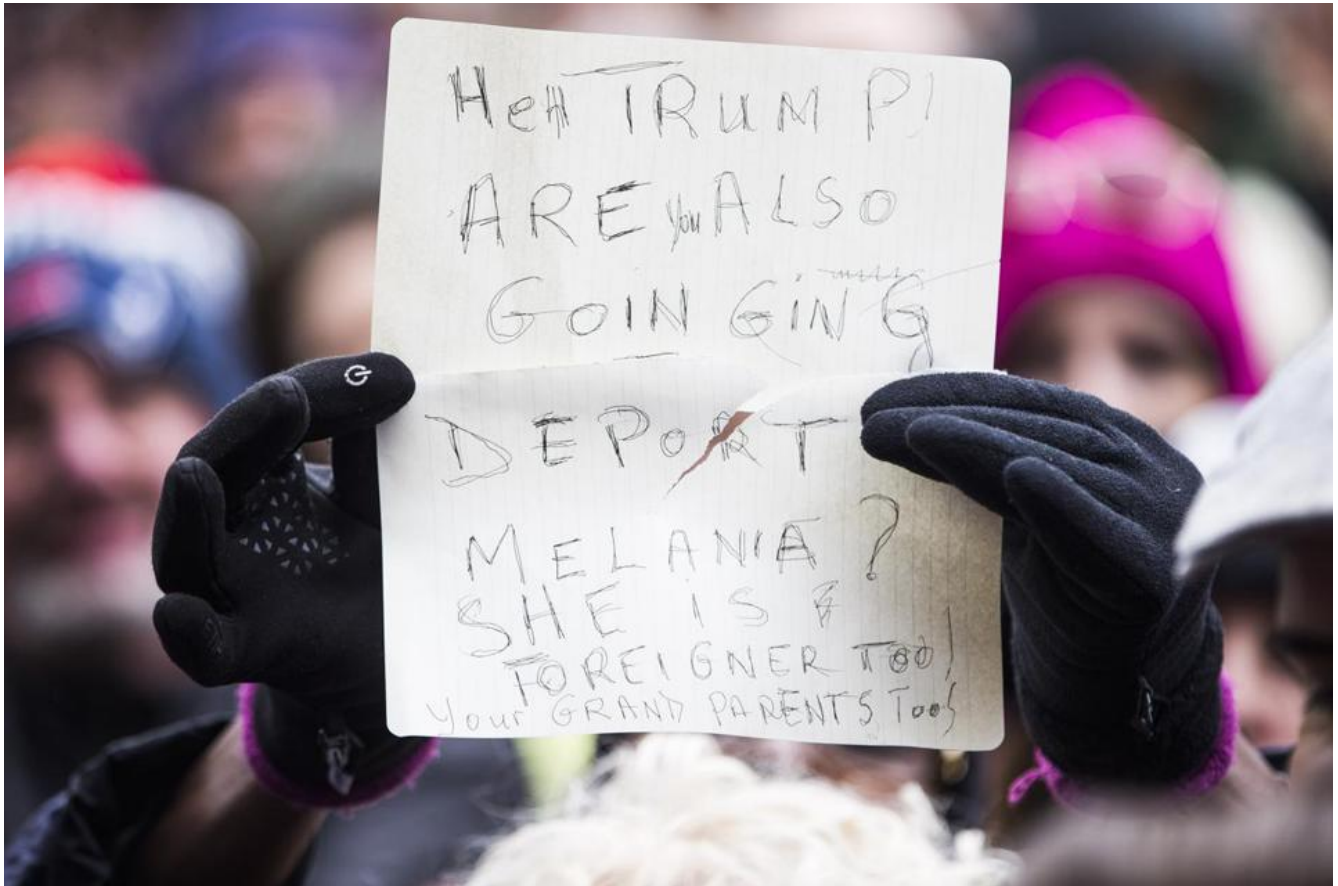 HeH TRUMP!
ARE you ALSO
GOIN GING
DEPORT
MELANIA?
SHE IS
FOREIGNER TOO!
your GRAND PARENTS Too!